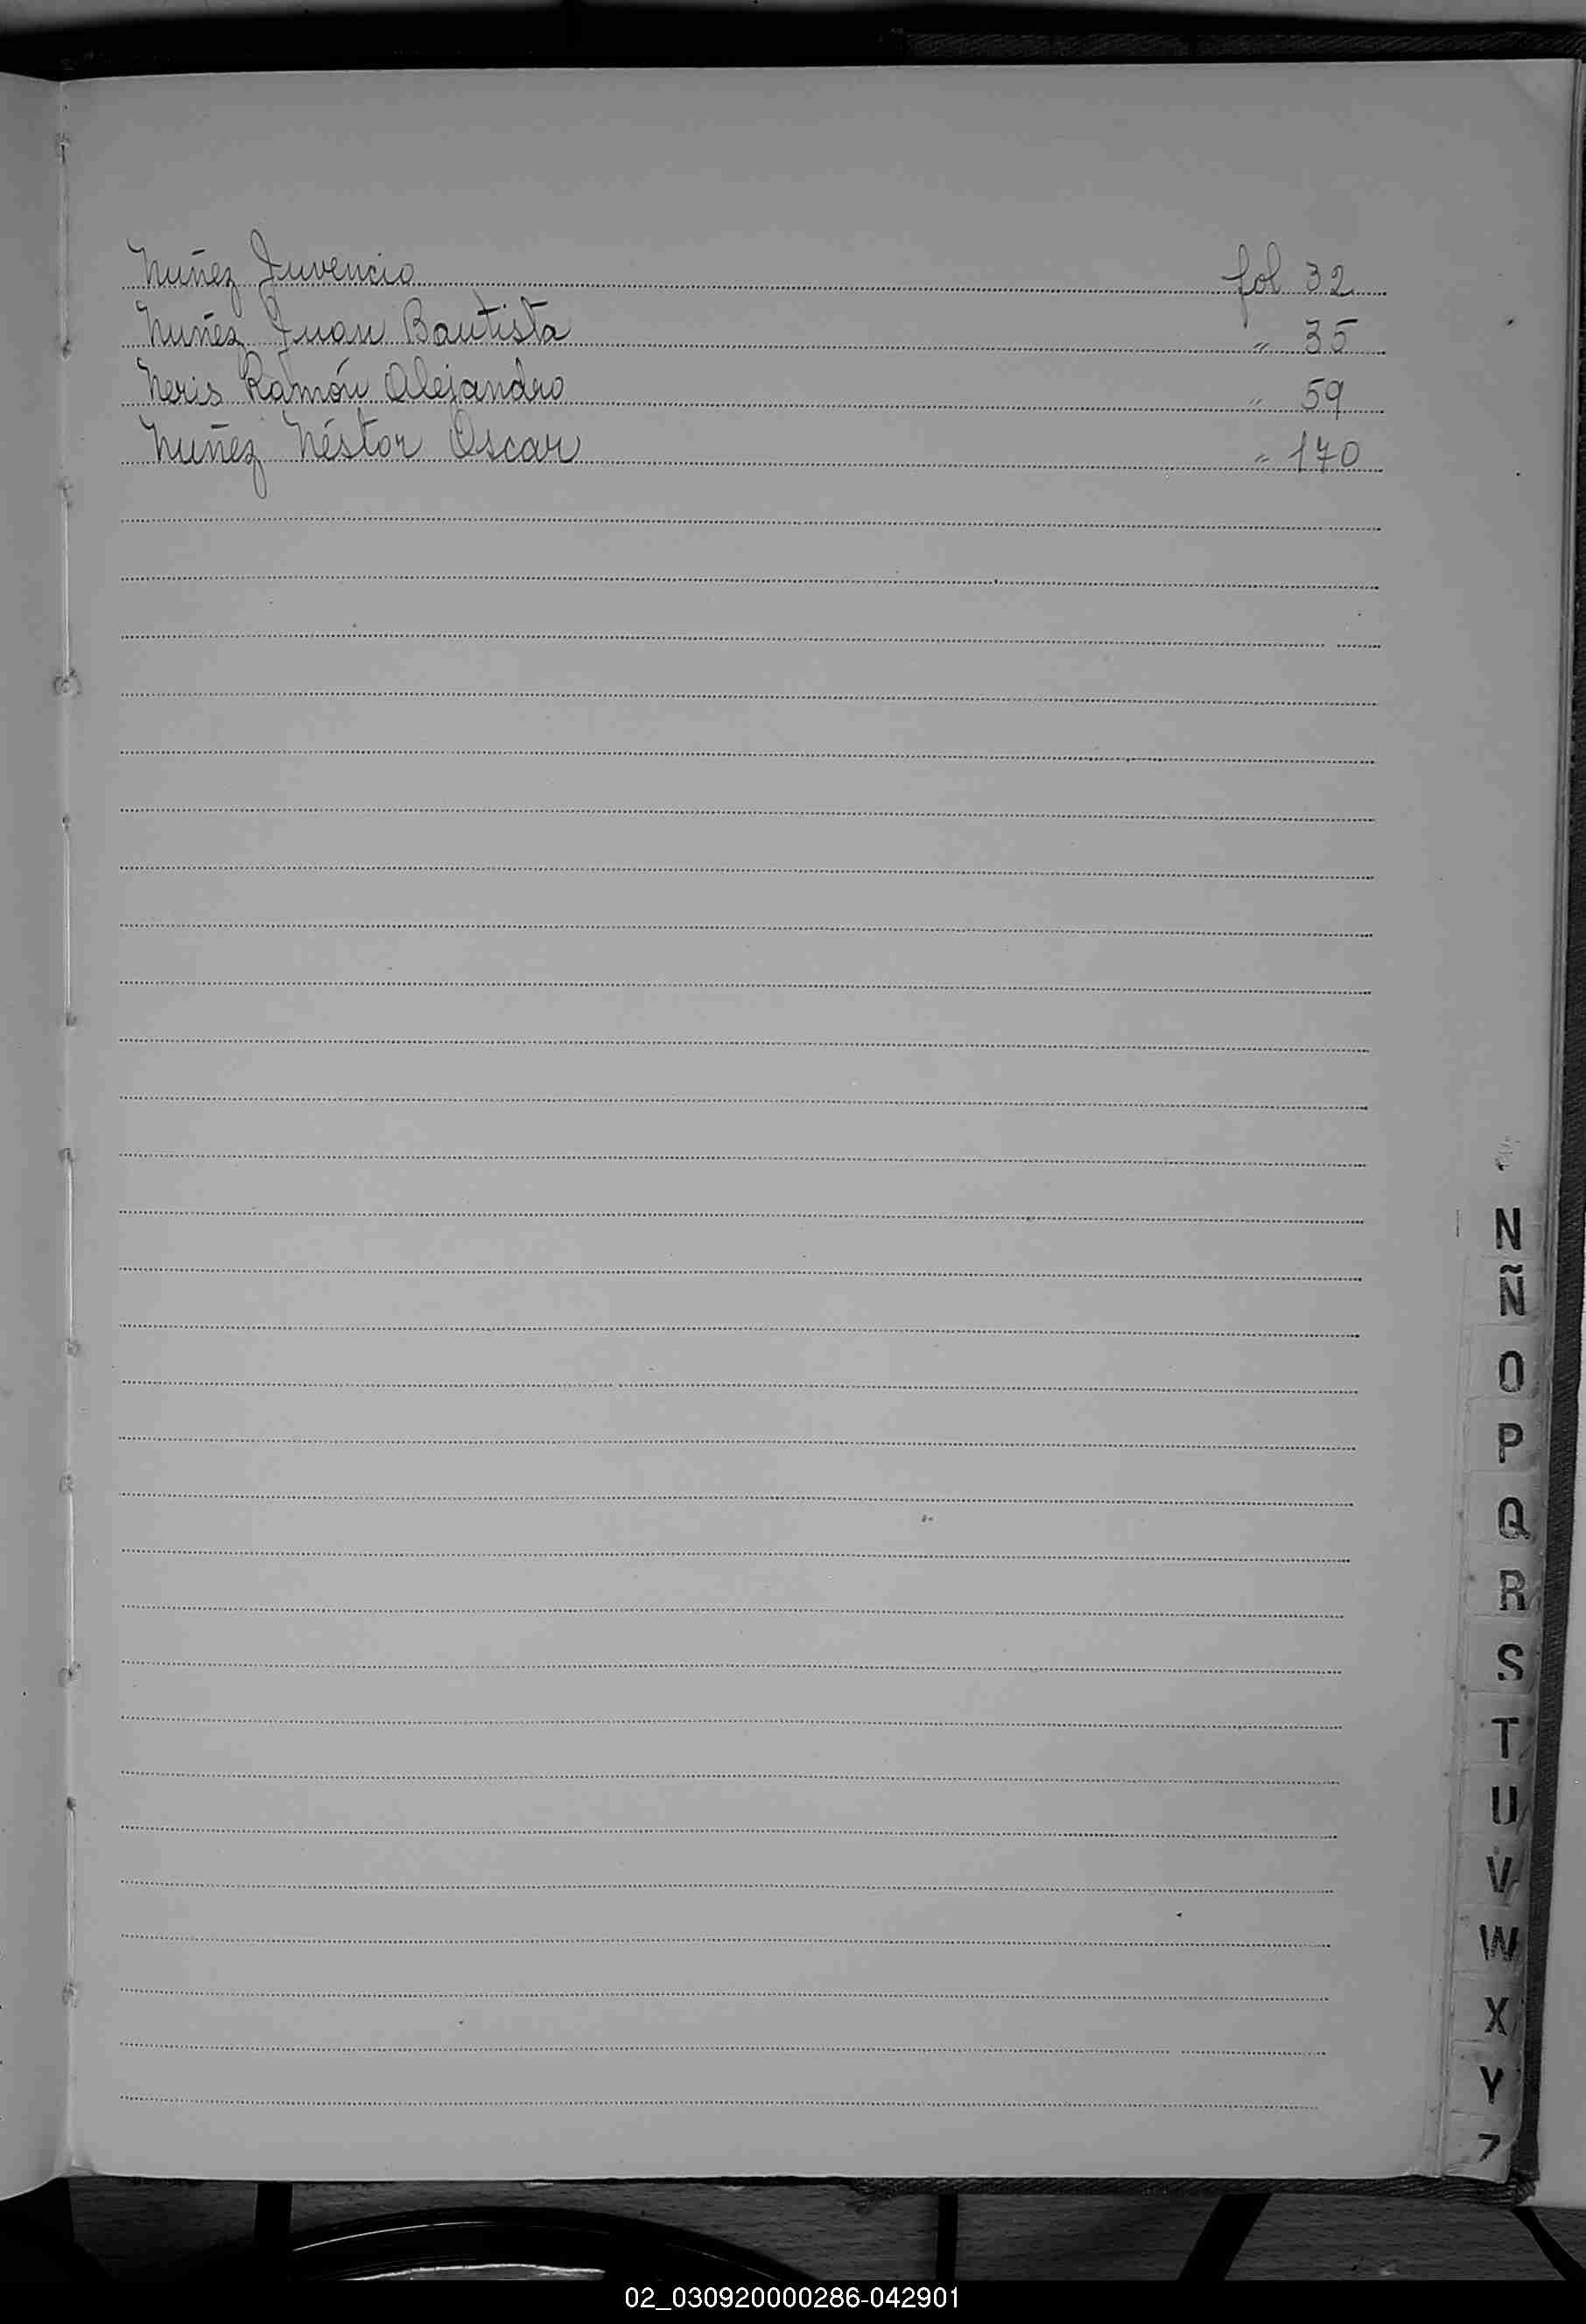 Nuñez Juvencio fol 32
Nuñez Juan Bautista " 35
Neris Ramón Alejandro " 59
Nuñez Néstor Oscar " 170
N
Ñ
O
P
Q
R
S
T
U
V
W
X
Y
Z
02_030920000286-042901